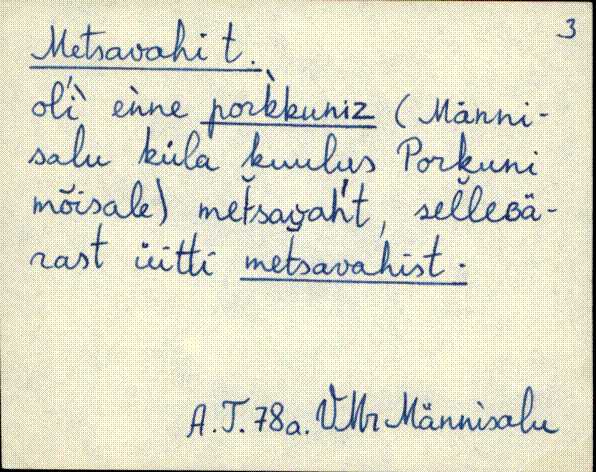 3
Metsavahi t.
oĺì ènne pork̀kuniz (Männi-
salu küla kuulus Porkuni
mõisale) meťsavah́t, selleʙä-
rast üitti metsavahist.
A.T. 78a. VMr Männisalu